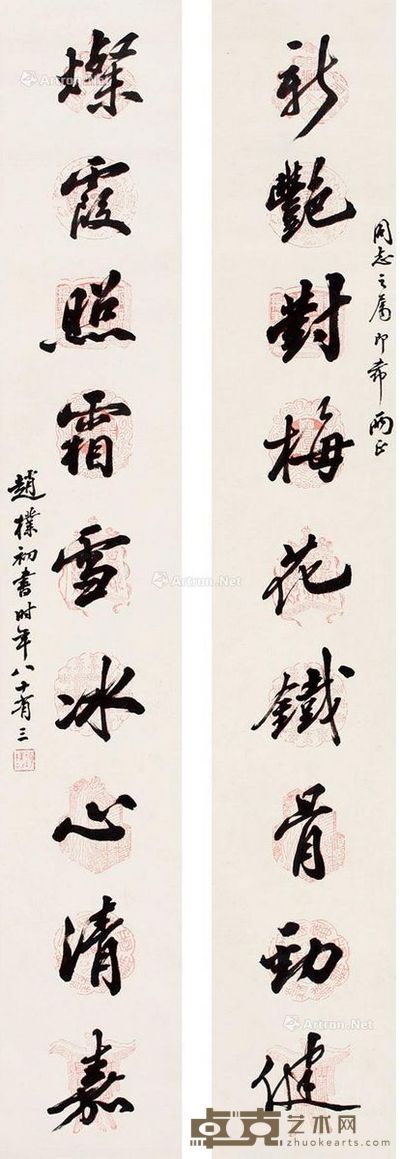 同志之属即希两正
新艷對梅花鐵骨勁健
燦霞照霜雪冰心清嘉
趙樸初書时年八十有三
Artron.Net
Artron.Net
Artron.Net
Artron.Net
卓克艺术网
zhuokearts.com